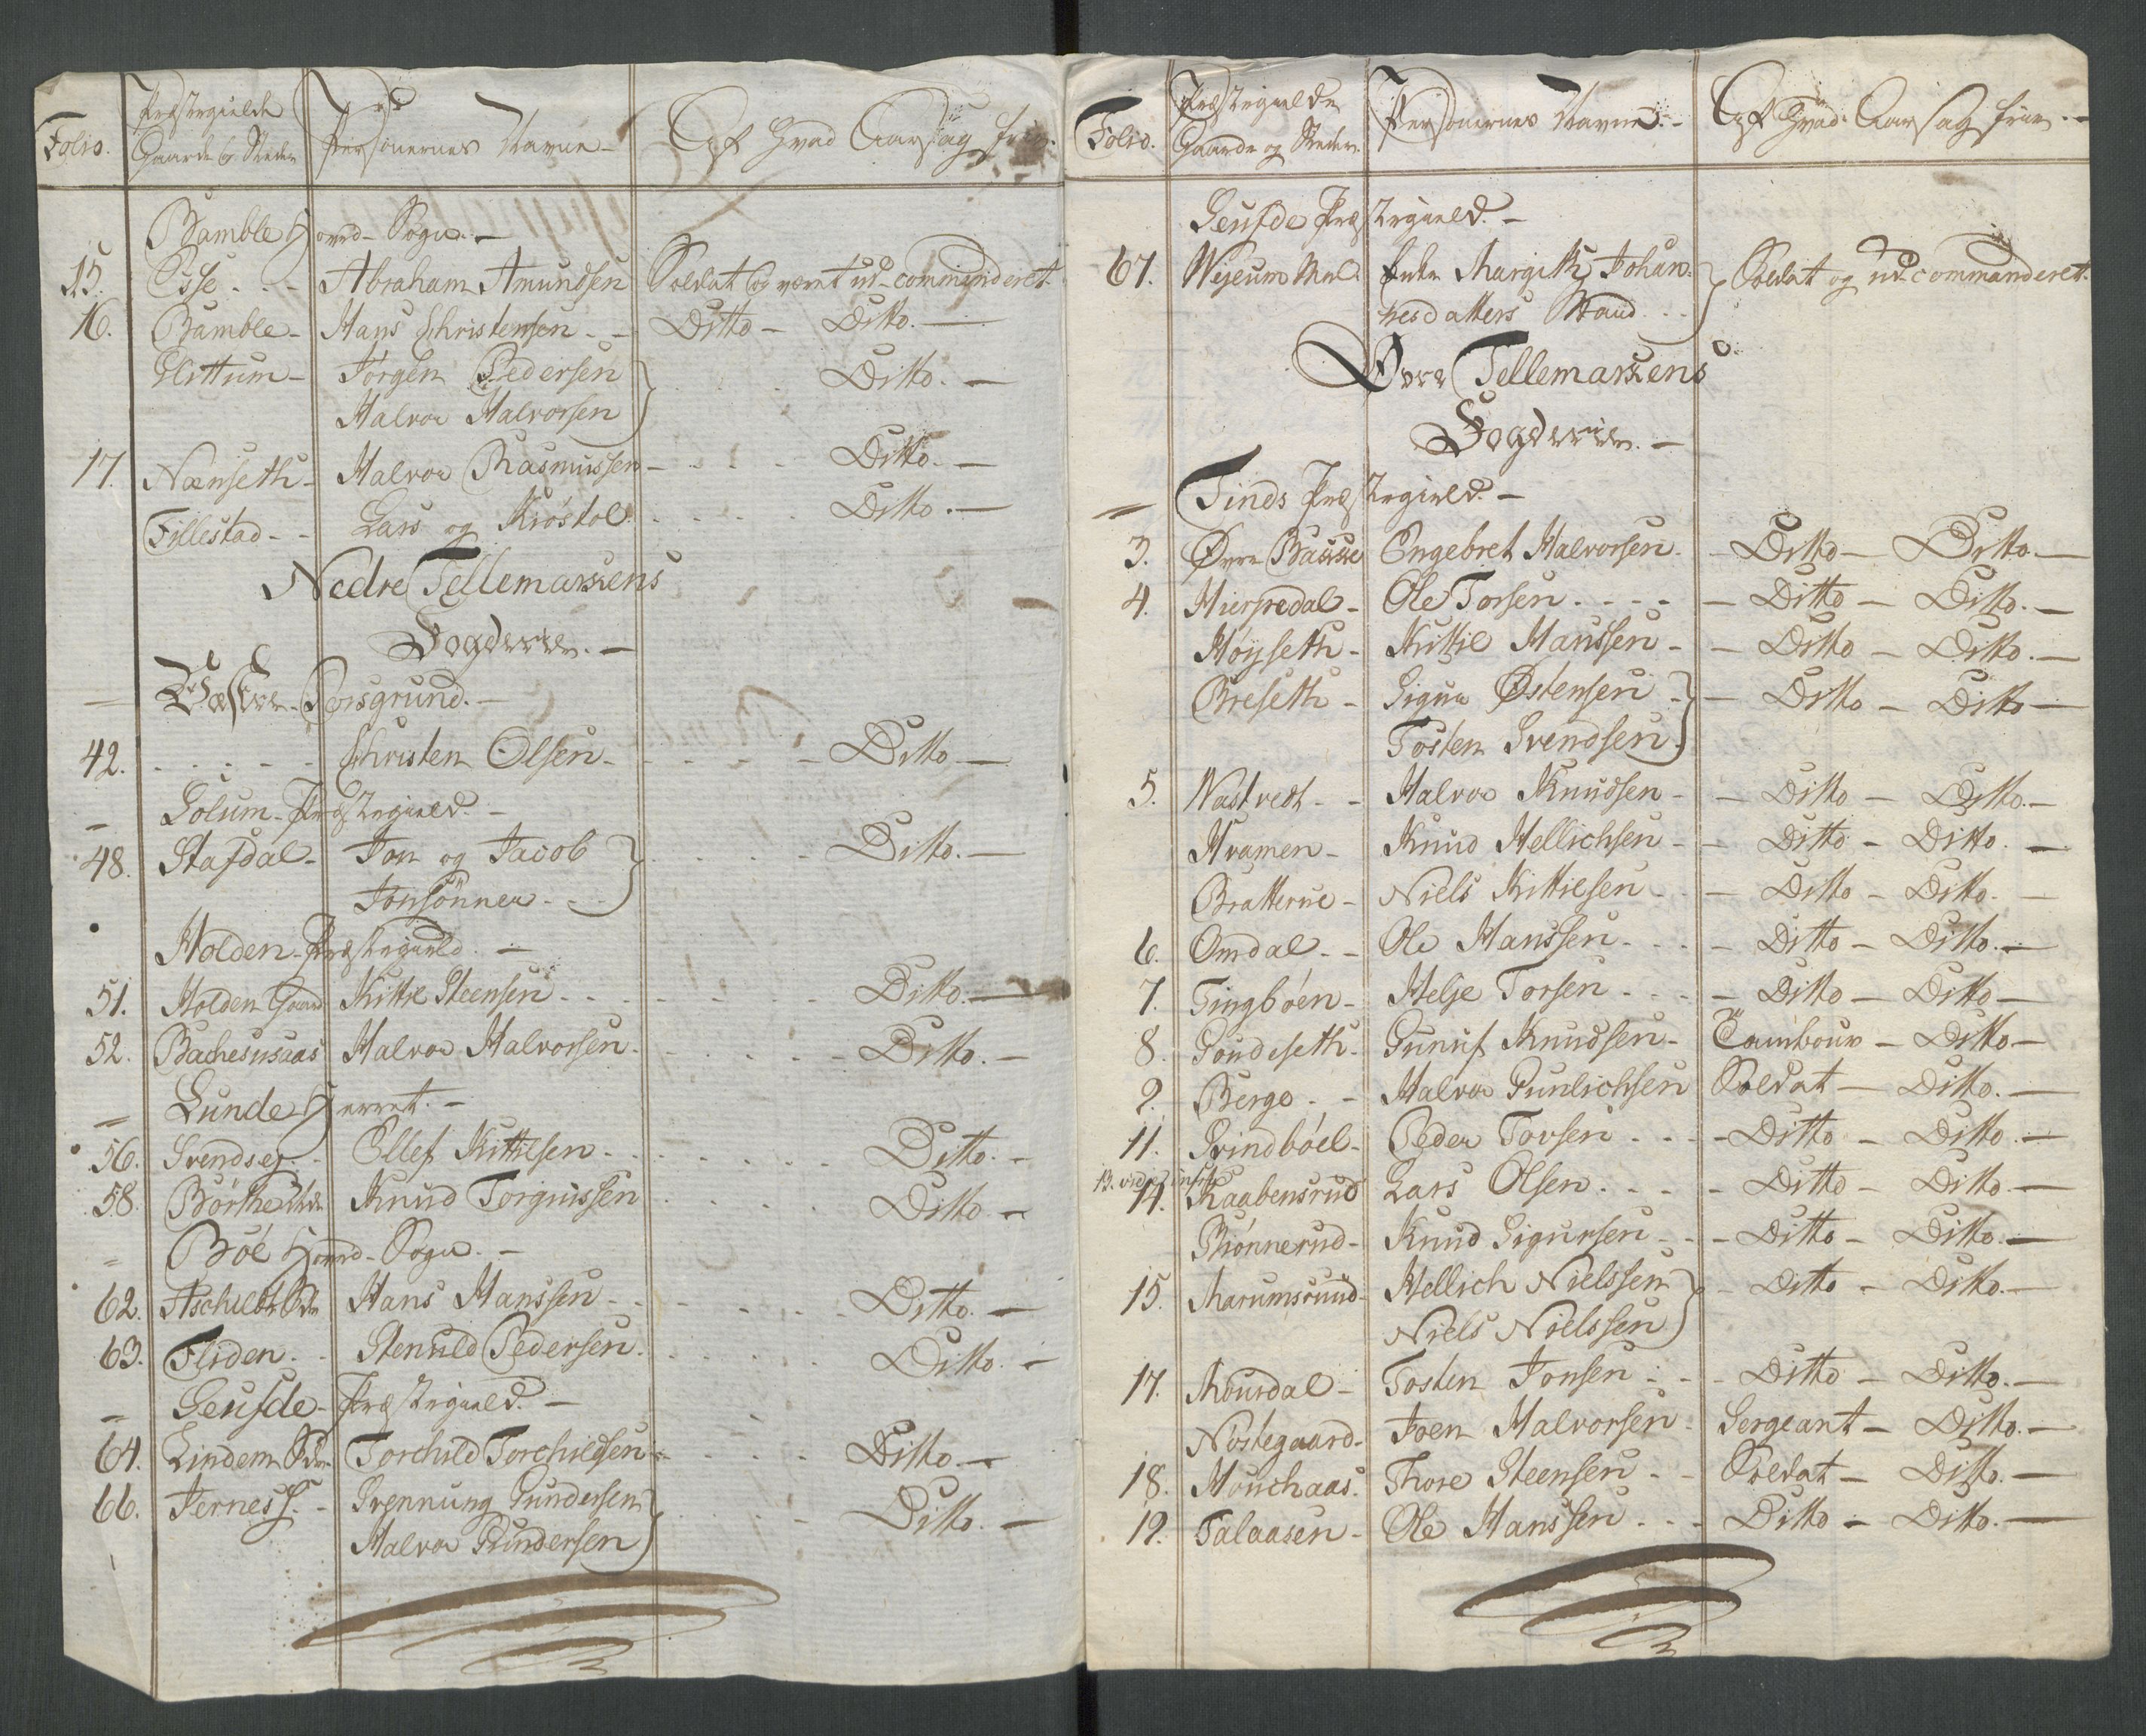 Folio. Præstegielde Gaarde og Steder Personernes Navne Af Hvad Aarsag frie.
Bamble Hoved-Sogn.
15. Osse Abraham Amundsen Soldat og været ud-commanderet.
16. Bamble Hans Christensen Ditto Ditto.
Glittum Jørgen Pedersen Ditto.
Halvor Halvorsen
17. Nænseth Halvor Rasmussen Ditto.
Fillestad Lars og Kiøstol Ditto.
Nedre Tellemarkens
Fogderie.
Porsgrund.
42. Christen Olsen Ditto.
Solum Præstegield.
48. Stafdal Jon og Jacob Ditto.
Jonsønner
Holden Præstegield.
51. Holden Gaard Kittil Steensen Ditto.
52. Halvor Halvorsen Ditto.
Lunde Herret.
56. Svendsej Ellef Kittilsen Ditto.
58. Børthe Knud Torgiussen Ditto.
Bøe Hoved-Sogn.
62. Hans Hanssen Ditto.
63. Fliden Stenuld Pedersen Ditto.
Seufde Præstegield.
64. Lindem Torchild Torchildsen Ditto.
66. Jerness Svennung Gundersen Ditto.
Halvor Gundersen
Folio. Præstegielde Gaarde og Steder. Personernes Navne. Af Hvad Aarsag frie.
Seufde Præstegield.
67. Margith Johan- Soldat og ud-commanderet.
nesdatters Mand
Øvre Tellemarkens
Fogderie.
Tinds Præstegield.
3. Øvre Engebret Halvorsen Ditto Ditto.
4. Hierpedal Ole Torsen Ditto Ditto.
Høyseth Kittil Hanssen Ditto Ditto.
Breseth Sigur Østensen Ditto Ditto
Tosten Svendsen
5. Nastvedt Halvor Knudsen Ditto Ditto.
Hvamen Knud Hellichsen Ditto Ditto.
Bratterue Niels Kittilsen Ditto Ditto.
6. Omdal Ole Hanssen Ditto Ditto.
7. Tingbøen Helje Torsen Ditto Ditto
8. Goudeseth Gunuf Knudsen Tambour Ditto
9. Bergo Halvor Gunlichsen Soldat Ditto.
11. Grindbøel Peder Torsen Ditto Ditto.
14. Raabensrud Lars Olsen Ditto Ditto.
Biønnerud Knud Sigursen Ditto Ditto.
15. Marumsruud Hellich Nielssen Ditto Ditto.
Niels Nielssen
17. Mourdal Tosten Jonsen Ditto Ditto.
Nøstegaard Joen Halvorsen Sergeant Ditto.
18. Houchaas Thore Steensen Soldat Ditto.
19. Talaasen Ole Hanssen Ditto Ditto.